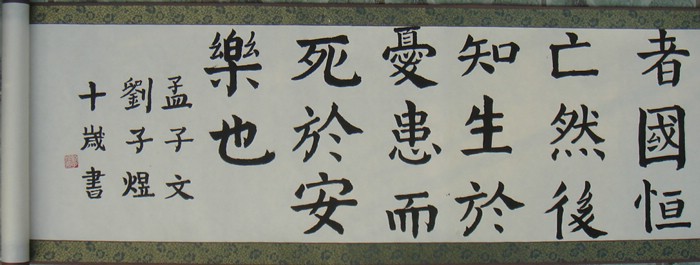 者國恒
亡然後
知生於
憂患而
死於安
樂也
孟子文
劉子煜
十歲書